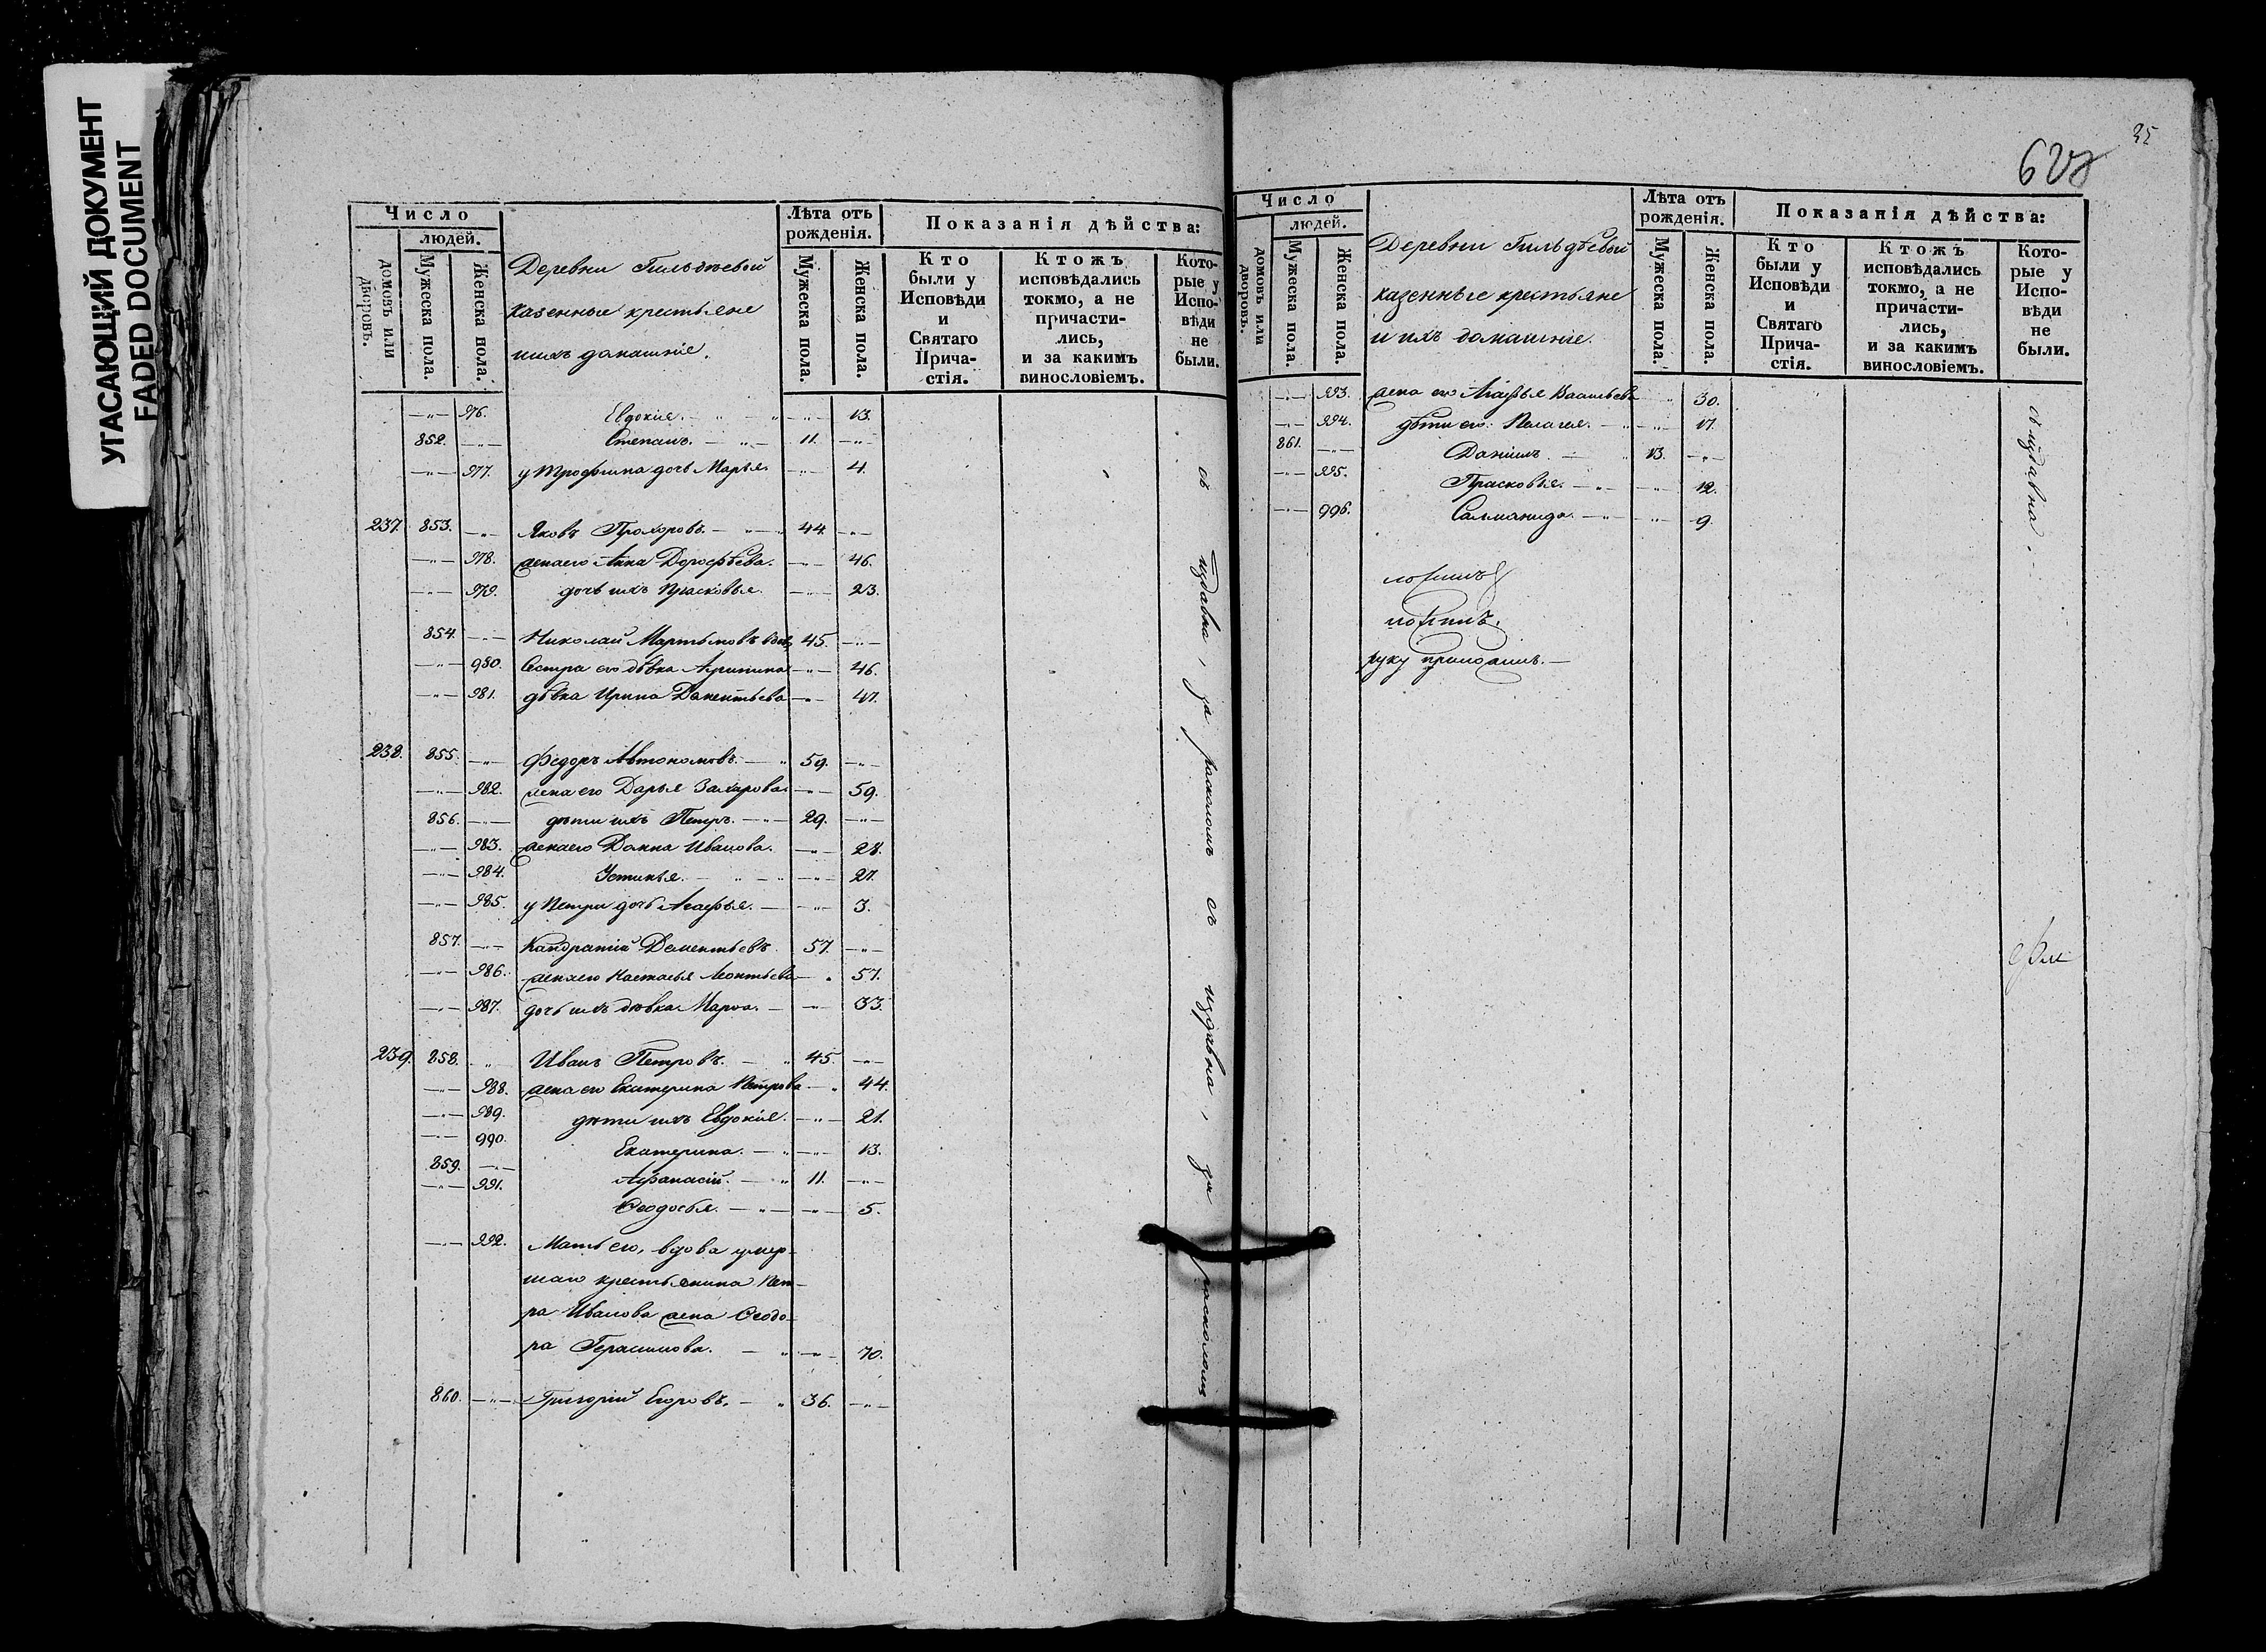 УГАСАЮЩИЙ ДОКУМЕНТ
FADED DOCUMENT
Число
людей.
домовъ или дворовъ.
Мужеска пола.
Женска пола.
Деревни Гильдѣевой
казенные крестьяне
и ихъ домашніе.
Лѣта отъ рожденія.
Мужеска пола.
Женска пола.
Показанія дѣйства:
Кто были у Исповѣди и Святаго Причастія.
Ктожъ исповѣдались токмо, а не причастились, и за какимъ винословіемъ.
Которые у Исповѣди не были.
976. Евдокія. 13.
852. Степанъ. 11.
977. у Трофима дочь Марья. 4.
237. 853. Яковъ Прохоровъ. 44.
978. жена его Анна Дорофѣева. 46.
979. дочь ихъ Прасковья. 23.
854. Николай Мартыновъ вдов, 45.
980. Сестра его дѣвка Агрипина 46.
981. дѣвка Ирина Даментьева 41.
238. 855. Федоръ Автономовъ. 59.
982. жена его Дарья Захарова. 59.
856. дѣти ихъ Петръ. 29.
983. жена его Домна Иванова. 28.
984. Устинья. 21.
985. у Петра дочь Агафья. 3.
857. Кандратій Дементьевъ 57.
986. жена его Настасья Леонтьева 51.
987. дочь ихъ дѣвка Марѳа. 33.
239. 858. Иванъ Петровъ. 45.
988. жена его Екатерина Петрова 44.
989. дѣти ихъ Евдокія. 21.
990. Екатерина. 13.
859. Афанасій. 11.
991. Ѳеодосья. 5.
992. Мать его, вдова умер-
шаго крестьянина Пет-
ра Иванова жена Ѳеодо-
ра Герасимова. 70.
860. Григорій Егоровъ. 36.
съ издавна, за расколомъ съ издавна, за расколомъ
35
Число
людей.
домовъ или дворовъ.
Мужеска пола.
Женска пола.
Деревни Гильдѣевой
казенные крестьяне
и ихъ домашніе.
Лѣта отъ рожденія.
Мужеска пола.
Женска пола.
Показанія дѣйства:
Кто были у Исповѣди и Святаго Причастія.
Ктожъ исповѣдались токмо, а не причастились, и за какимъ винословіемъ.
Которые у Исповѣди не были.
993. жена его Агафья Васильева 30.
994. дѣти его: Пелагея. 17.
861. Даніилъ. 13.
995. Прасковья. 12.
996. Саломанида. 9.
руку приложилъ.
съ издавна.